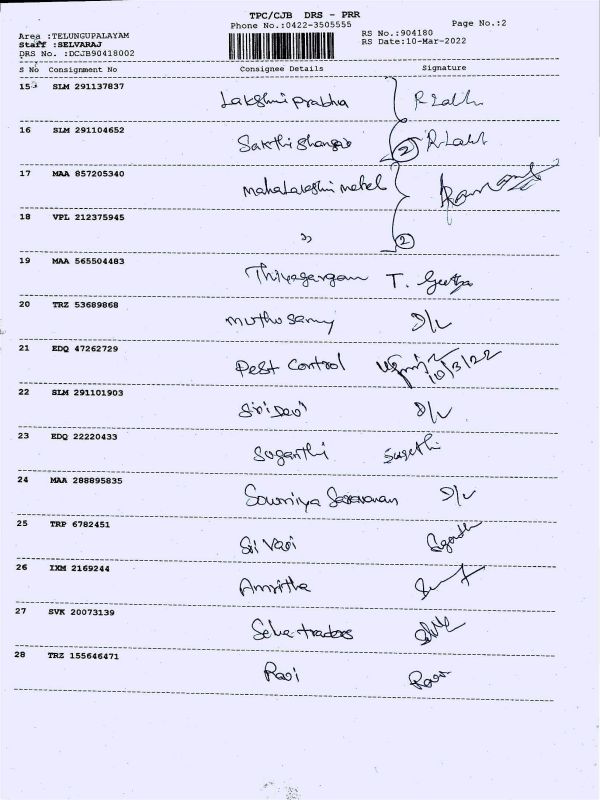 TPC/CJB DRS - PRR
Phone No.:0422-3505555
Page No.:2
Area :TELUNGUPALAYAM
RS No.:904180
Staff :SELVARAJ
RS Date:10-Mar-2022
DRS No. :DCJB90418002
S No Consignment No Consignee Details Signature
15 SLM 291137837 Lakshmi prabha
16 SLM 291104652 2
17 MAA 857205340 Mahalakshmi
18 VPL 212375945 2
19 MAA 565504483 T. Geetha
20 TRZ 53689868 muthu samy
21 EDQ 47262729 Pest Control 10/3/22
22 SLM 291101903 Sri Devi
23 EDQ 22220433 Suganthi
24 MAA 288895835 Sowmiya Saravanan
25 TRP 6782451 Sri Vari
26 IXM 2169244 Amritha
27 SVK 20073139 traders
28 TRZ 155646471 Ravi Ravi